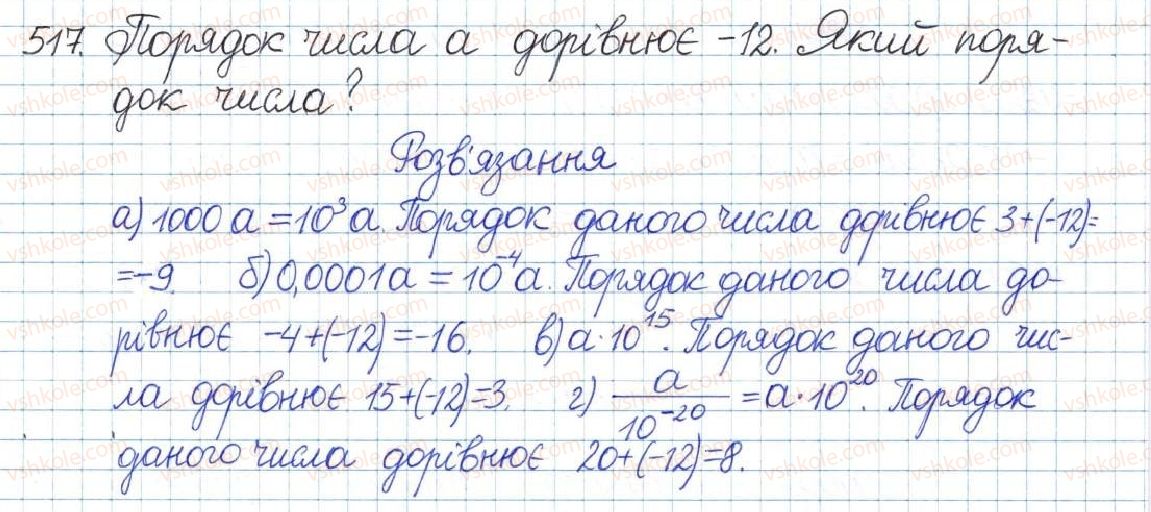 517. Порядок числа а дорівнює -12. Який поря-
док числа?
Розв'язання
а) 1000 а = 10³а. Порядок даного числа дорівнює 3+(-12)=
=-9. б) 0,0001а = 10⁻⁴а. Порядок даного числа до-
рівнює -4+(-12)=-16. в) а·10¹⁵. Порядок даного чис-
ла дорівнює 15+(-12)=3. г) а/10⁻²⁰ = а·10²⁰. Порядок
даного числа дорівнює 20+(-12)=8.